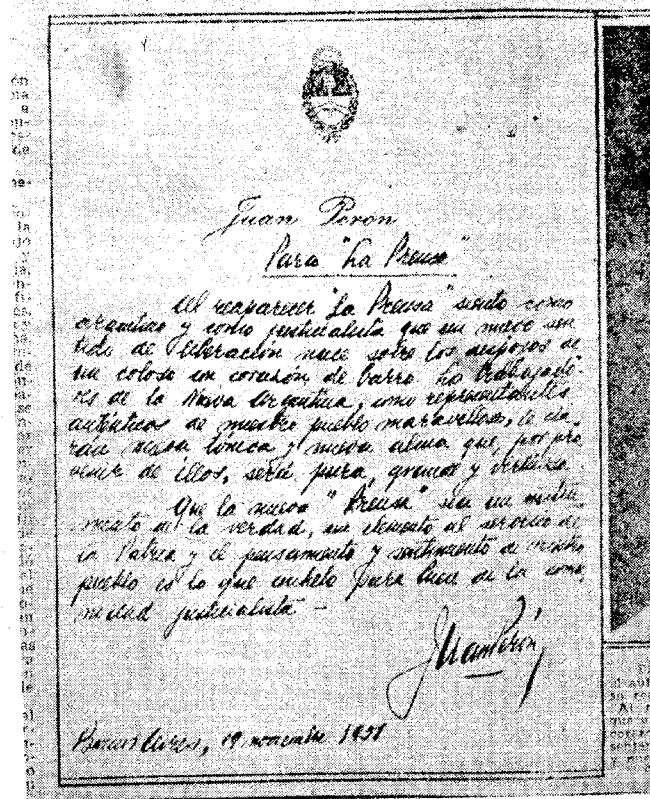 Juan Perón
Para "La Prensa"
Al reaparecer "La Prensa" siento como
argentino y como justicialista que un nuevo sen
tido de liberación nace sobre los despojos de
un coloso con corazón de barro. Los trabajado-
res de la Nueva Argentina, como representantes
auténticos de nuestro pueblo maravilloso, le da
rán nueva tónica y nueva alma que, por pro
venir de ellos, será pura, grande y virtuosa.
Que la nueva "Prensa" sea un instru
mento de la verdad, un elemento al servicio de
la Patria y el pensamiento y sentimiento de nuestro
pueblo es lo que anhelo para bien de la comu
nidad justicialista -
Juan Perón
Buenos Aires, 19 noviembre 1951